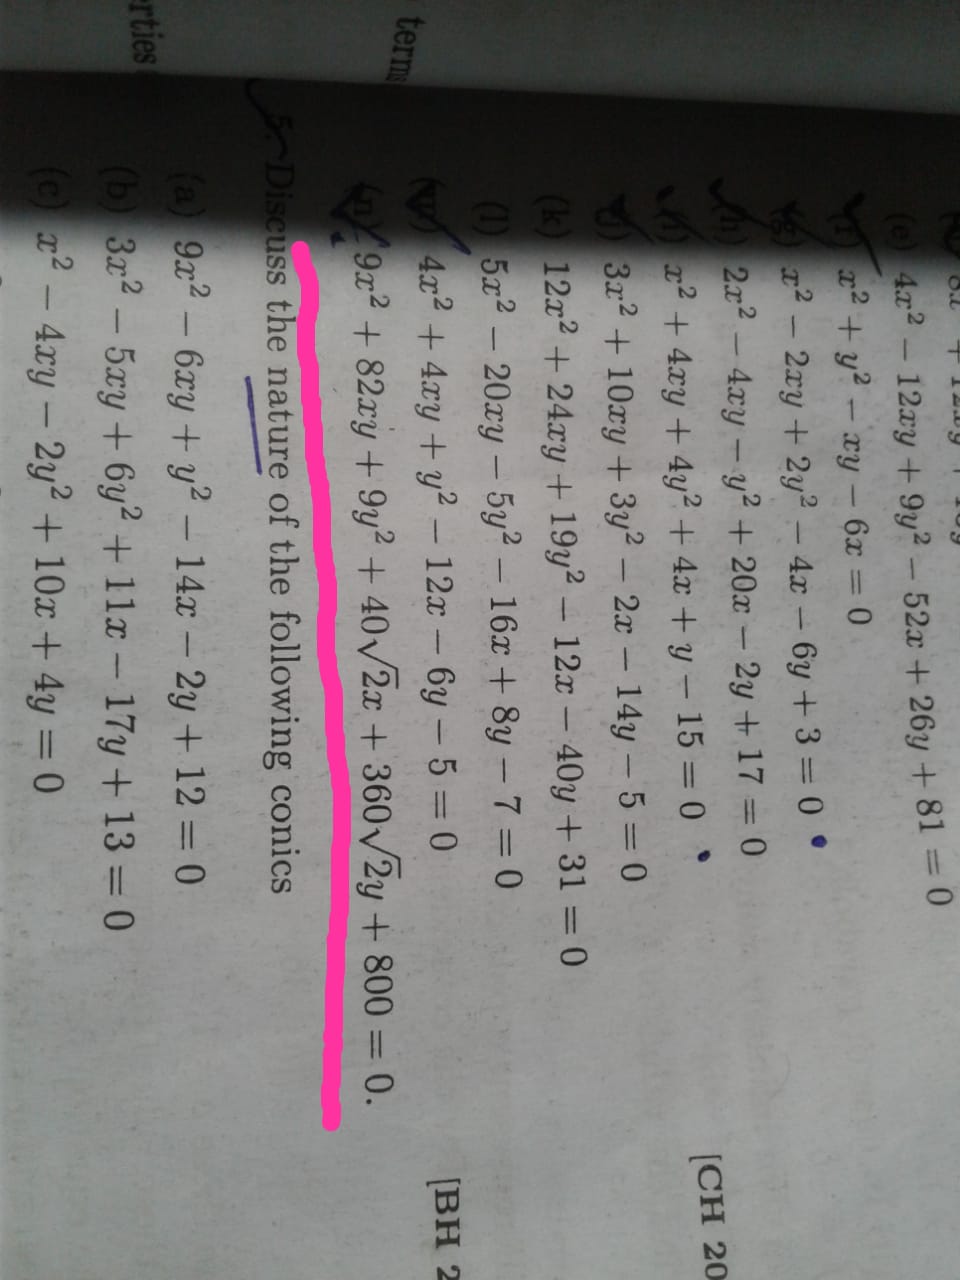 (e) 4x² − 12xy + 9y² − 52x + 26y + 81 = 0
(f) x² + y² − xy − 6x = 0
(g) x² − 2xy + 2y² − 4x − 6y + 3 = 0
(h) 2x² − 4xy − y² + 20x − 2y + 17 = 0
(i) x² + 4xy + 4y² + 4x + y − 15 = 0 [CH 20
(j) 3x² + 10xy + 3y² − 2x − 14y − 5 = 0
(k) 12x² + 24xy + 19y² − 12x − 40y + 31 = 0
(l) 5x² − 20xy − 5y² − 16x + 8y − 7 = 0
4x² + 4xy + y² − 12x − 6y − 5 = 0 [BH 2
(n) 9x² + 82xy + 9y² + 40√2x + 360√2y + 800 = 0.
5. Discuss the nature of the following conics
(a) 9x² − 6xy + y² − 14x − 2y + 12 = 0
(b) 3x² − 5xy + 6y² + 11x − 17y + 13 = 0
(c) x² − 4xy − 2y² + 10x + 4y = 0
terms
erties